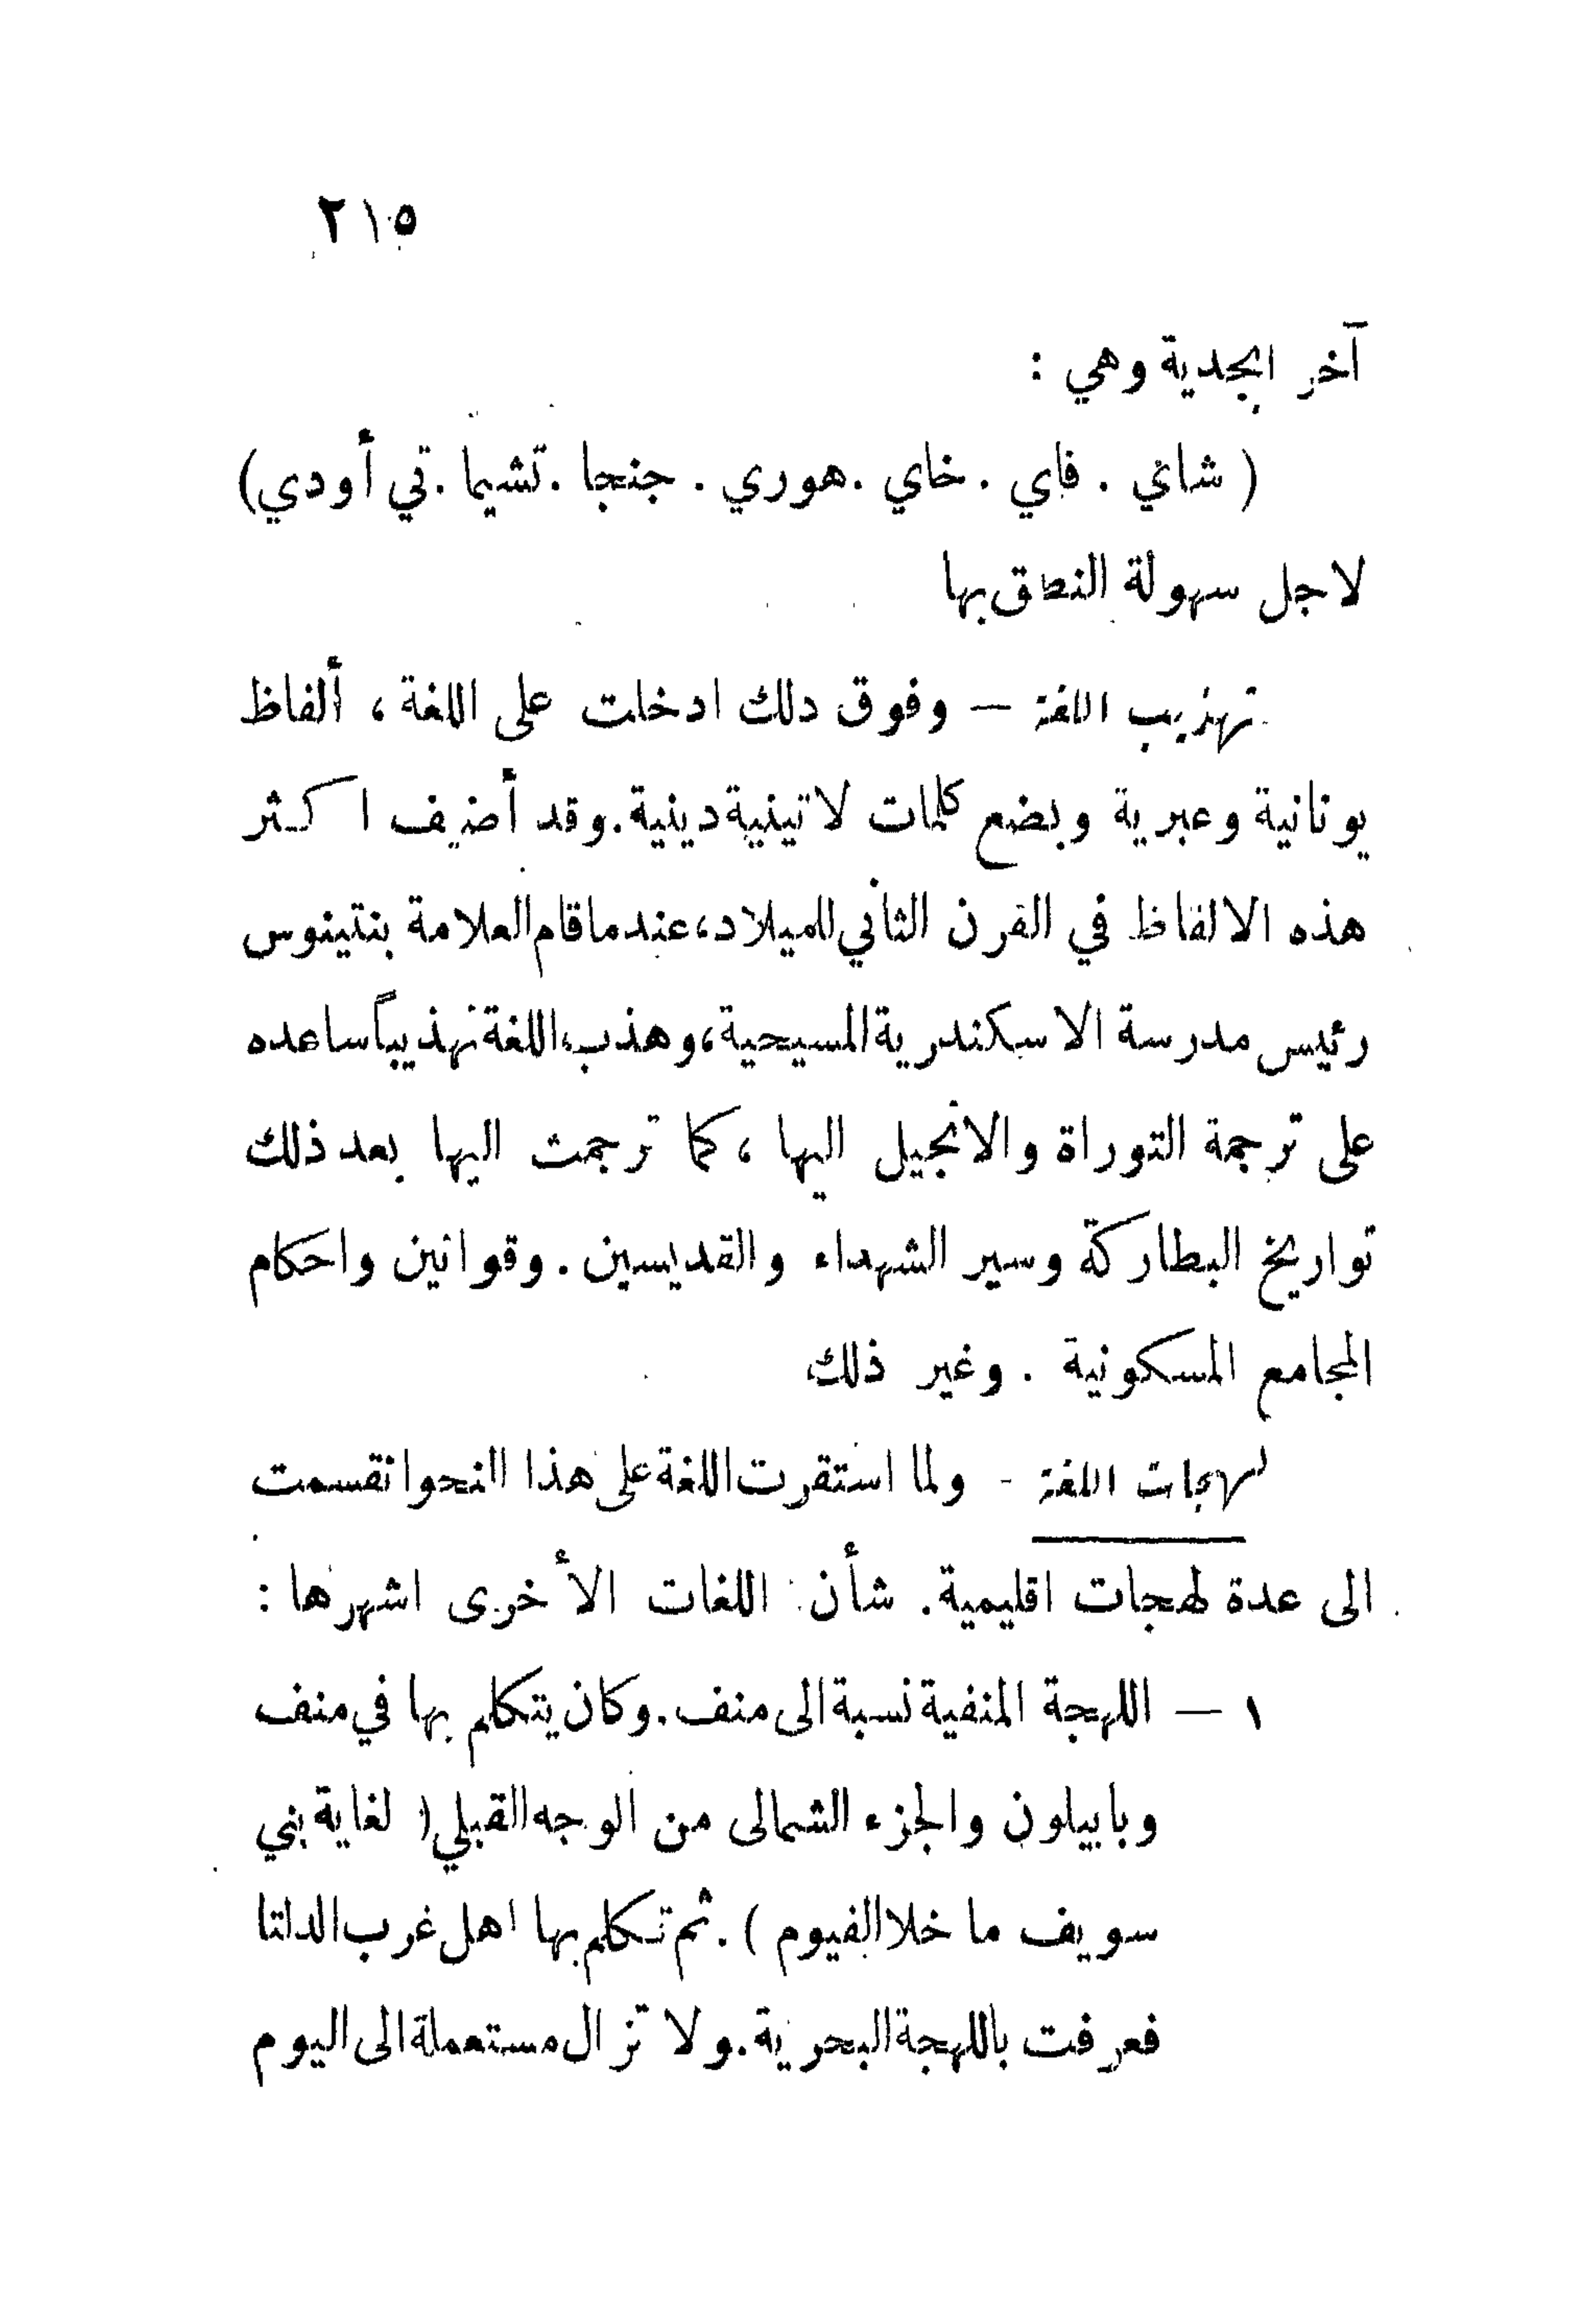 ٢١٥
آخر ابجدية وهي :
( شاي . فاي . خاي . هوري . جنجا . تشيما . تي أودي)
لاجل سهولة النطق بها
تهذيب اللغة — وفوق دلك ادخلت على اللغة ، ألفاظ
يونانية وعبرية وبضع كلمات لاتينية دينية . وقد أضيف اكثر
هذه الالفاظ في القرن الثاني للميلاد، عندما قام العلامة بنتينوس
رئيس مدرسة الاسكندرية المسيحية، وهذب اللغة تهذيباً ساعده
على ترجمة التوراة والانجيل اليها ، كما ترجمت اليها بعد ذلك
تواريخ البطاركة وسير الشهداء والقديسين . وقوانين واحكام
المجامع المسكونية . وغير ذلك
لهجات اللغة - ولما استقرت اللغة على هذا النحو انقسمت
الى عدة لهجات اقليمية . شأن اللغات الأخرى اشهرها :
١ — اللهجة المنفية نسبة الى منف . وكان يتكلم بها في منف
وبابيلون والجزء الشمالى من الوجه القبلي ( لغاية بني
سويف ما خلا الفيوم ) . ثم تكلم بها اهل غرب الدلتا
فعرفت باللهجة البحرية . ولا تزال مستعملة الى اليوم